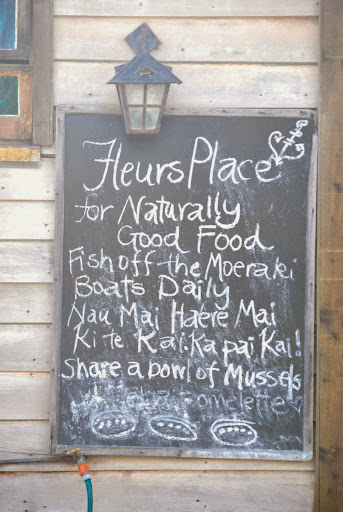 Fleurs Place
for Naturally
Good Food
Fish off the Moeraki
Boats Daily
Nau Mai Haere Mai
Ki Te Kai Ka pai Kai!
share a bowl of Mussels
omelette